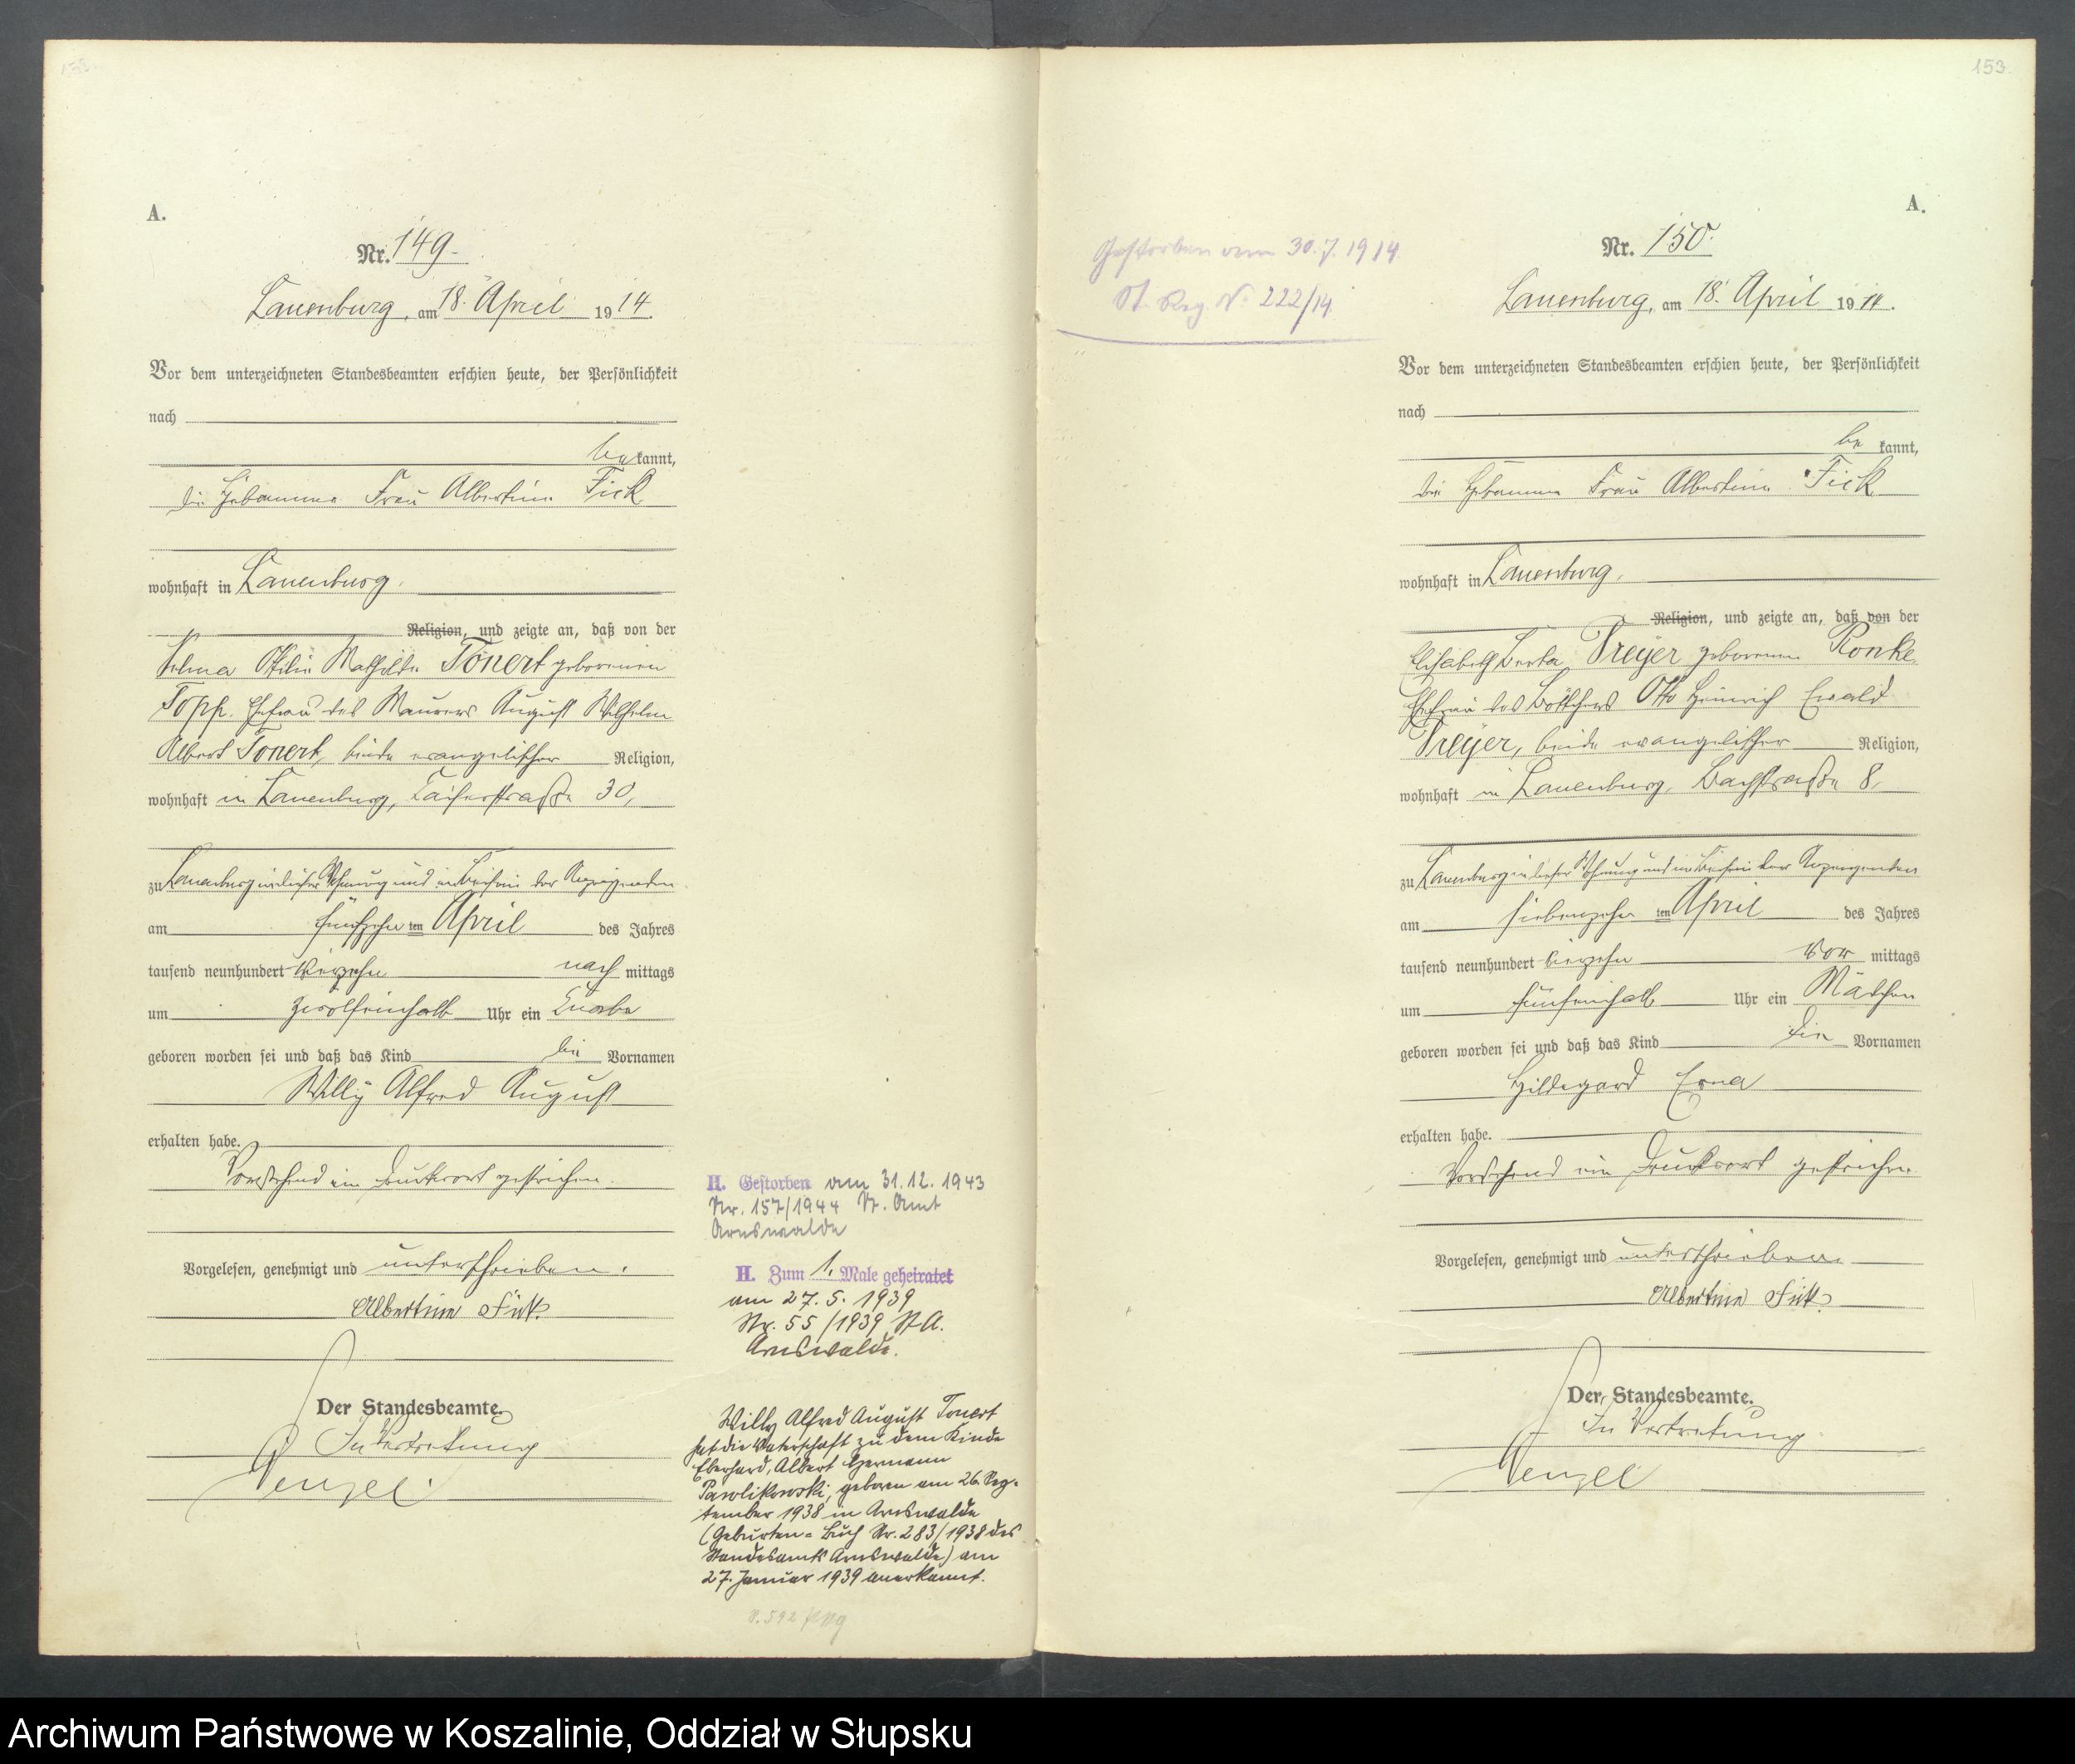 A.
Nr. 149.
Lauenburg, am 18. April 1914.
Vor dem unterzeichneten Standesbeamten erschien heute, der Persönlichkeit
nach
bekannt,
die Hebamme Frau Albertine Fick
wohnhaft in Lauenburg.
Religion, und zeigte an, daß von der
Selma Ottilie Mathilde Tonert geborenen
Topp, Ehefrau des Maurers August Wilhelm
Albert Tonert, beide evangelischer Religion,
wohnhaft in Lauenburg, Kaiserstraße 30,
zu Lauenburg in dieser Wohnung und im Beisein der Anzeigenden
am fünfzehnten April des Jahres
tausend neunhundert vierzehn nachmittags
um zwölfeinhalb Uhr ein Knabe
geboren worden sei und daß das Kind die Vornamen
Willy Alfred August
erhalten habe.
Vorstehend ein Druckwort gestrichen.
Vorgelesen, genehmigt und unterschrieben.
Albertine Fick
Der Standesbeamte.
In Vertretung
Wenzel
H. Gestorben am 31.12.1943
Nr. 157/1944 St. Amt
Arnswalde
H. Zum 1. Male geheiratet
am 27.5.1939
Nr. 55/1939 St A.
Arnswalde.
Willy Alfred August Tonert
hat die Vaterschaft zu dem Kinde
Eberhard, Albert Hermann
Pawlikowski, geboren am 26. Sep-
tember 1938 in Arnswalde
(Geburten-Buch Nr. 283/1938 des
Standesamts Arnswalde) am
27. Januar 1939 anerkannt.
153.
A.
Gestorben am 30.7.1914
St. Reg. Nr. 222/14
Nr. 150.
Lauenburg, am 18. April 1914.
Vor dem unterzeichneten Standesbeamten erschien heute, der Persönlichkeit
nach
bekannt,
die Hebamme Frau Albertine Fick
wohnhaft in Lauenburg,
Religion, und zeigte an, daß von der
Elisabeth Berta Preyer geborenen Ronke,
Ehefrau des Böttchers Otto Heinrich Ewald
Preyer, beide evangelischer Religion,
wohnhaft in Lauenburg, Bachstraße 8,
zu Lauenburg in dieser Wohnung und im Beisein der Anzeigenden
am siebenzehnten April des Jahres
tausend neunhundert vierzehn vormittags
um fünfeinhalb Uhr ein Mädchen
geboren worden sei und daß das Kind die Vornamen
Hildegard Erna
erhalten habe.
Vorstehend ein Druckwort gestrichen.
Vorgelesen, genehmigt und unterschrieben.
Albertine Fick
Der Standesbeamte.
In Vertretung
Wenzel
Archiwum Państwowe w Koszalinie, Oddział w Słupsku